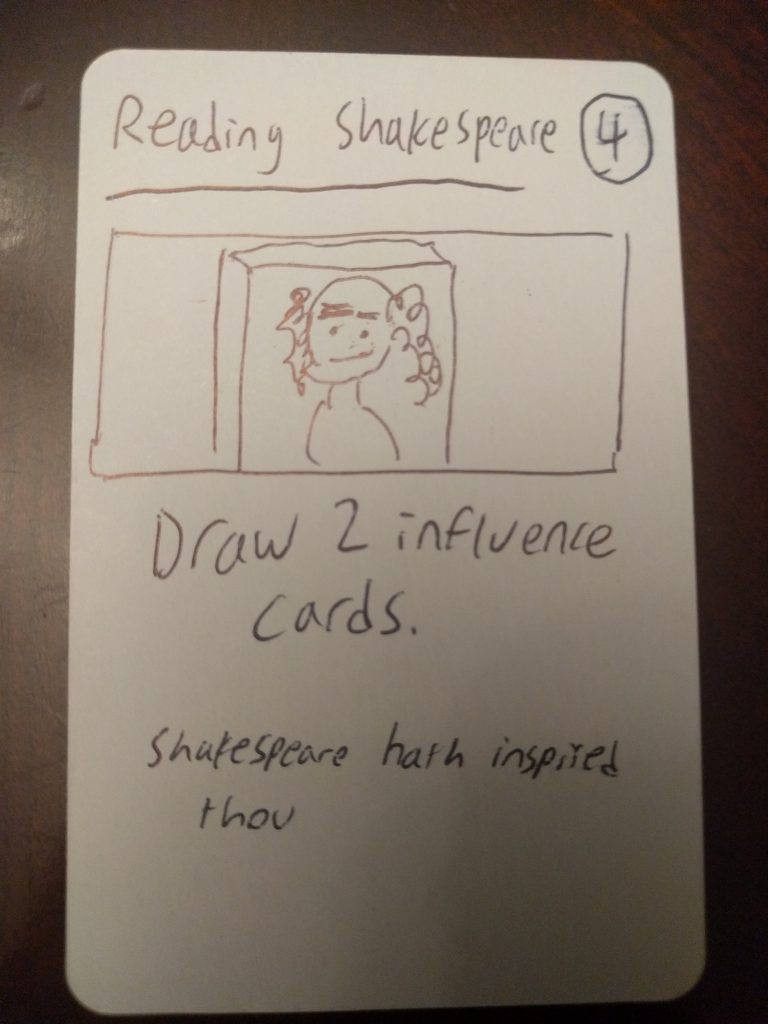 Reading Shakespeare 4
Draw 2 influence
cards.
Shakespeare hath inspired
thou